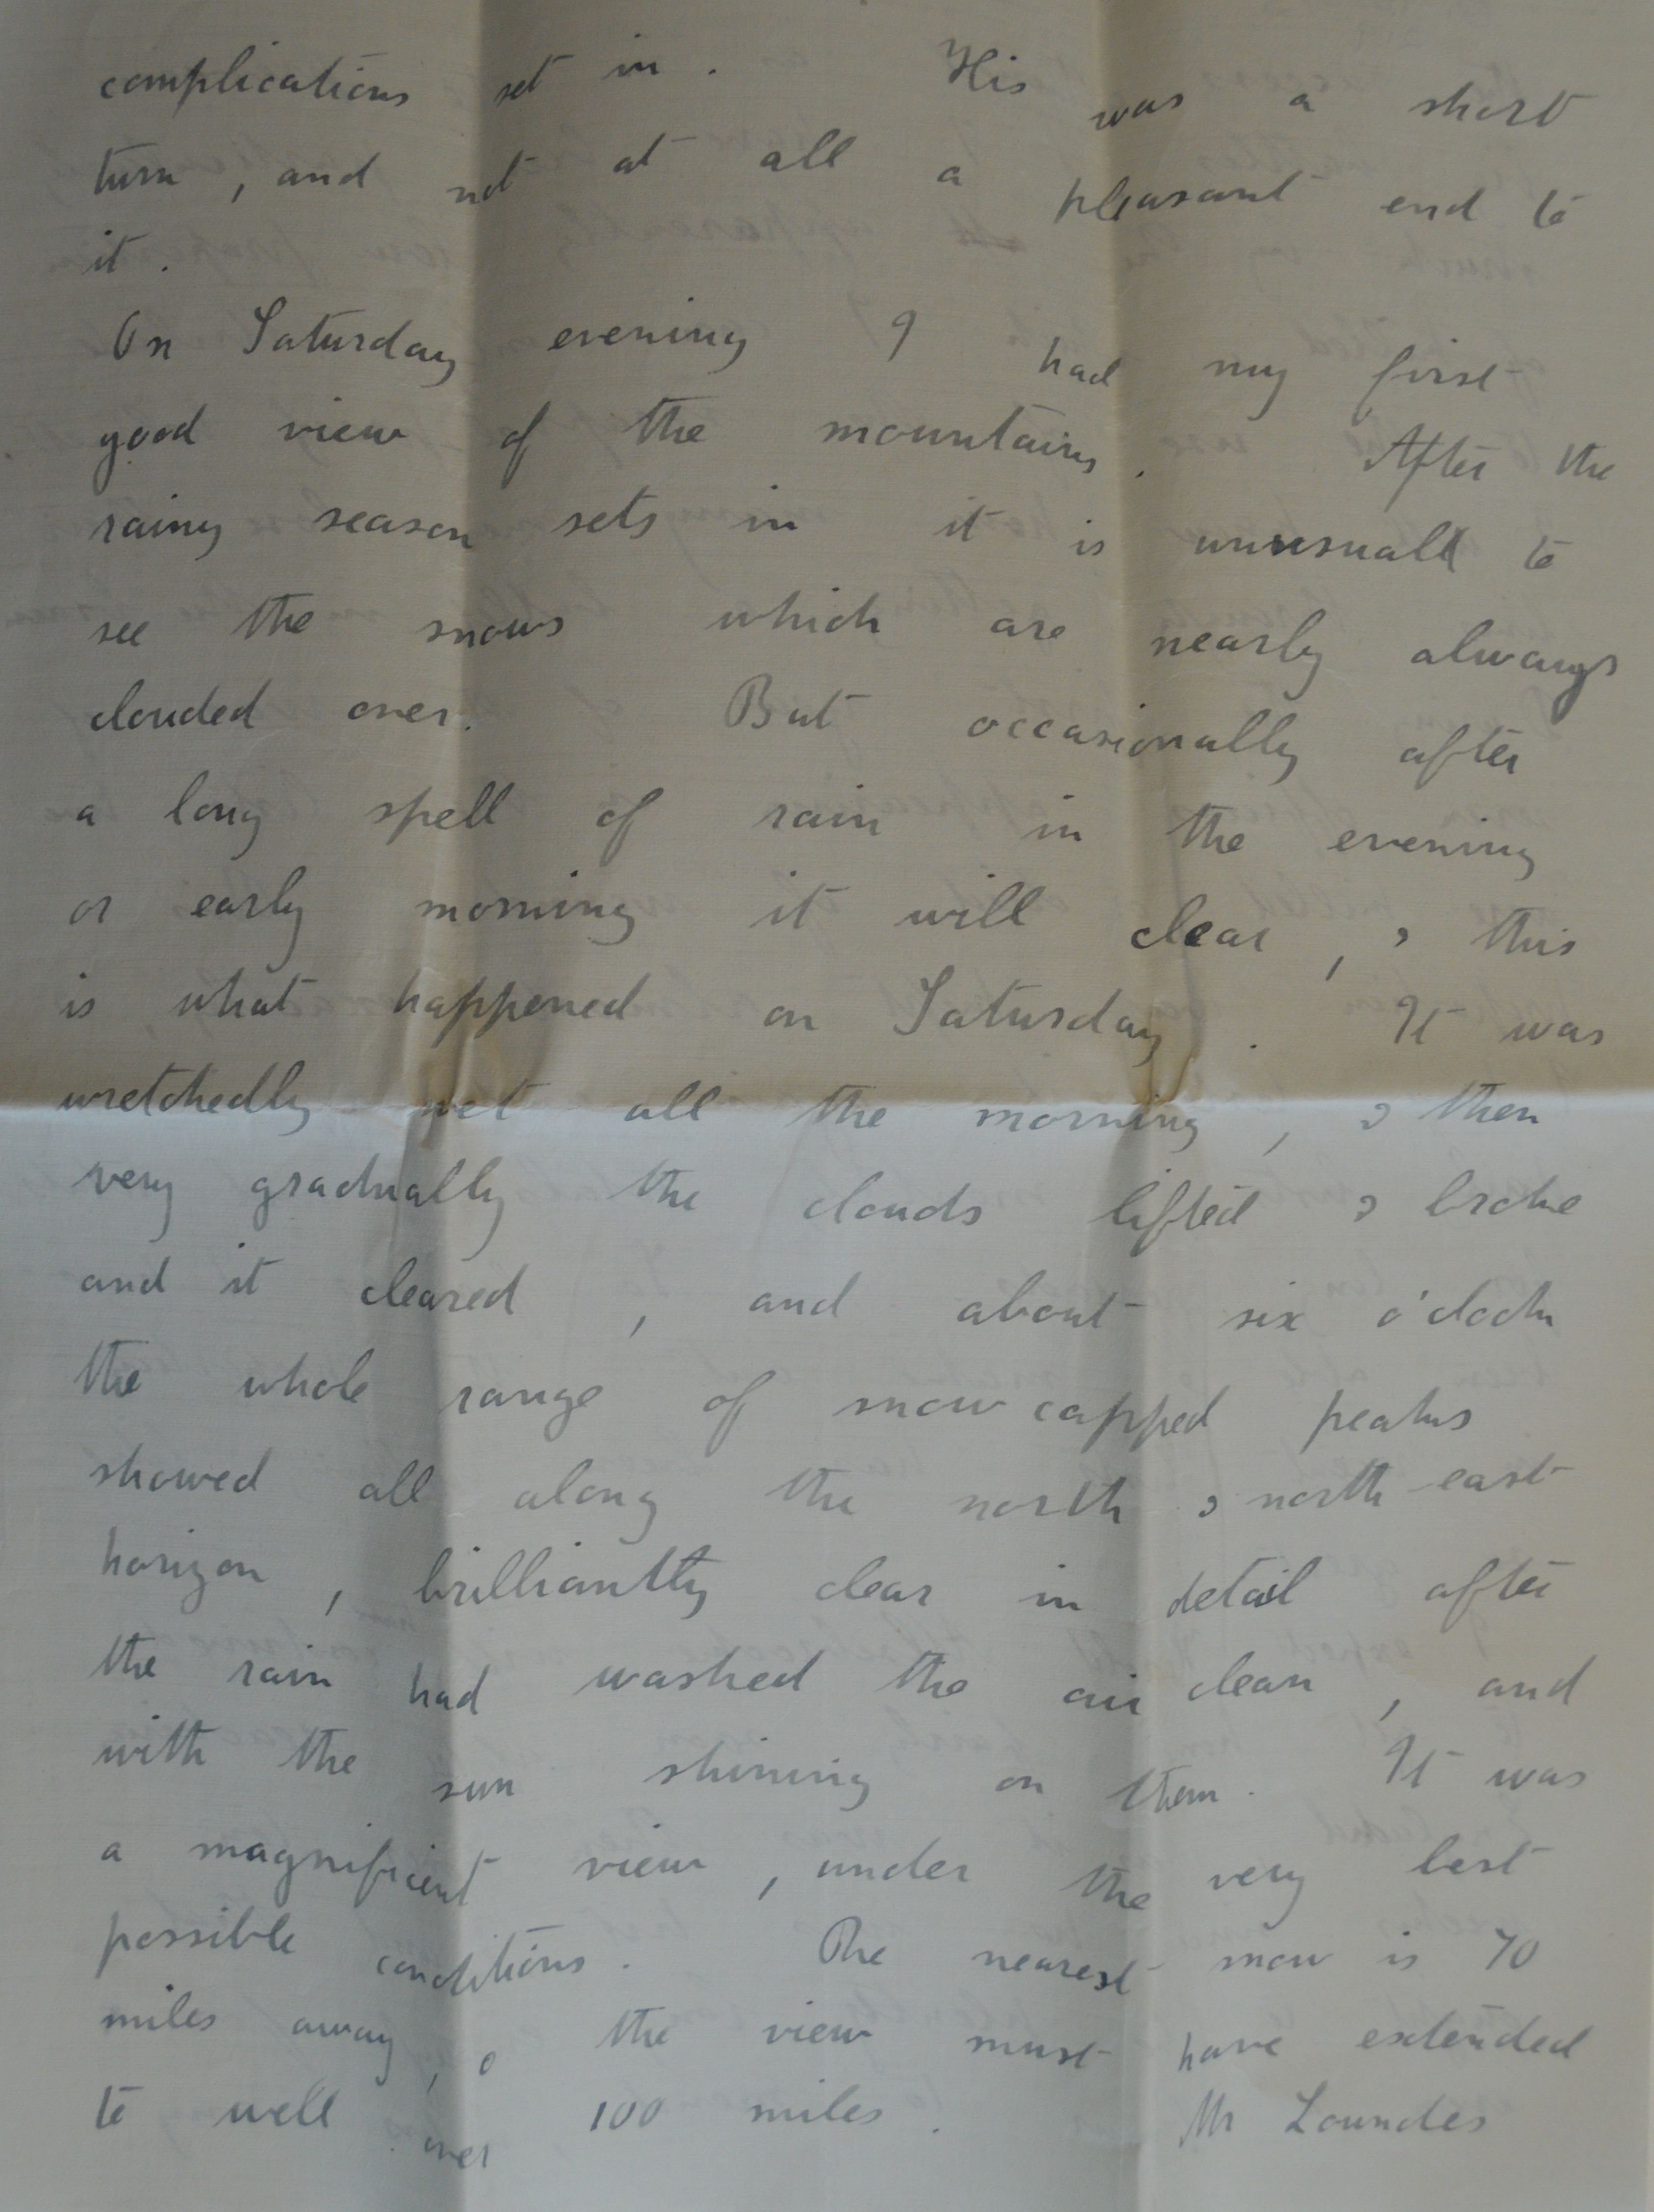 complications set in. His was a short
turn, and not at all a pleasant end to
it.
On Saturday evening I had my first
good view of the mountains. After the
rainy season sets in it is unusuall to
see the snows which are nearly always
clouded over. But occasionally after
a long spell of rain in the evening
or early morning it will clear, & this
is what happened on Saturday. It was
wretchedly wet all the morning, & then
very gradually the clouds lifted & broke
and it cleared, and about six o'clock
the whole range of snow capped peaks
showed all along the north & north east
horizon, brilliantly clear in detail after
the rain had washed the air clean, and
with the sun shining on them. It was
a magnificent view, under the very best
possible conditions. The nearest snow is 70
miles away, & the view must have extended
to well over 100 miles. Mr Lowndes